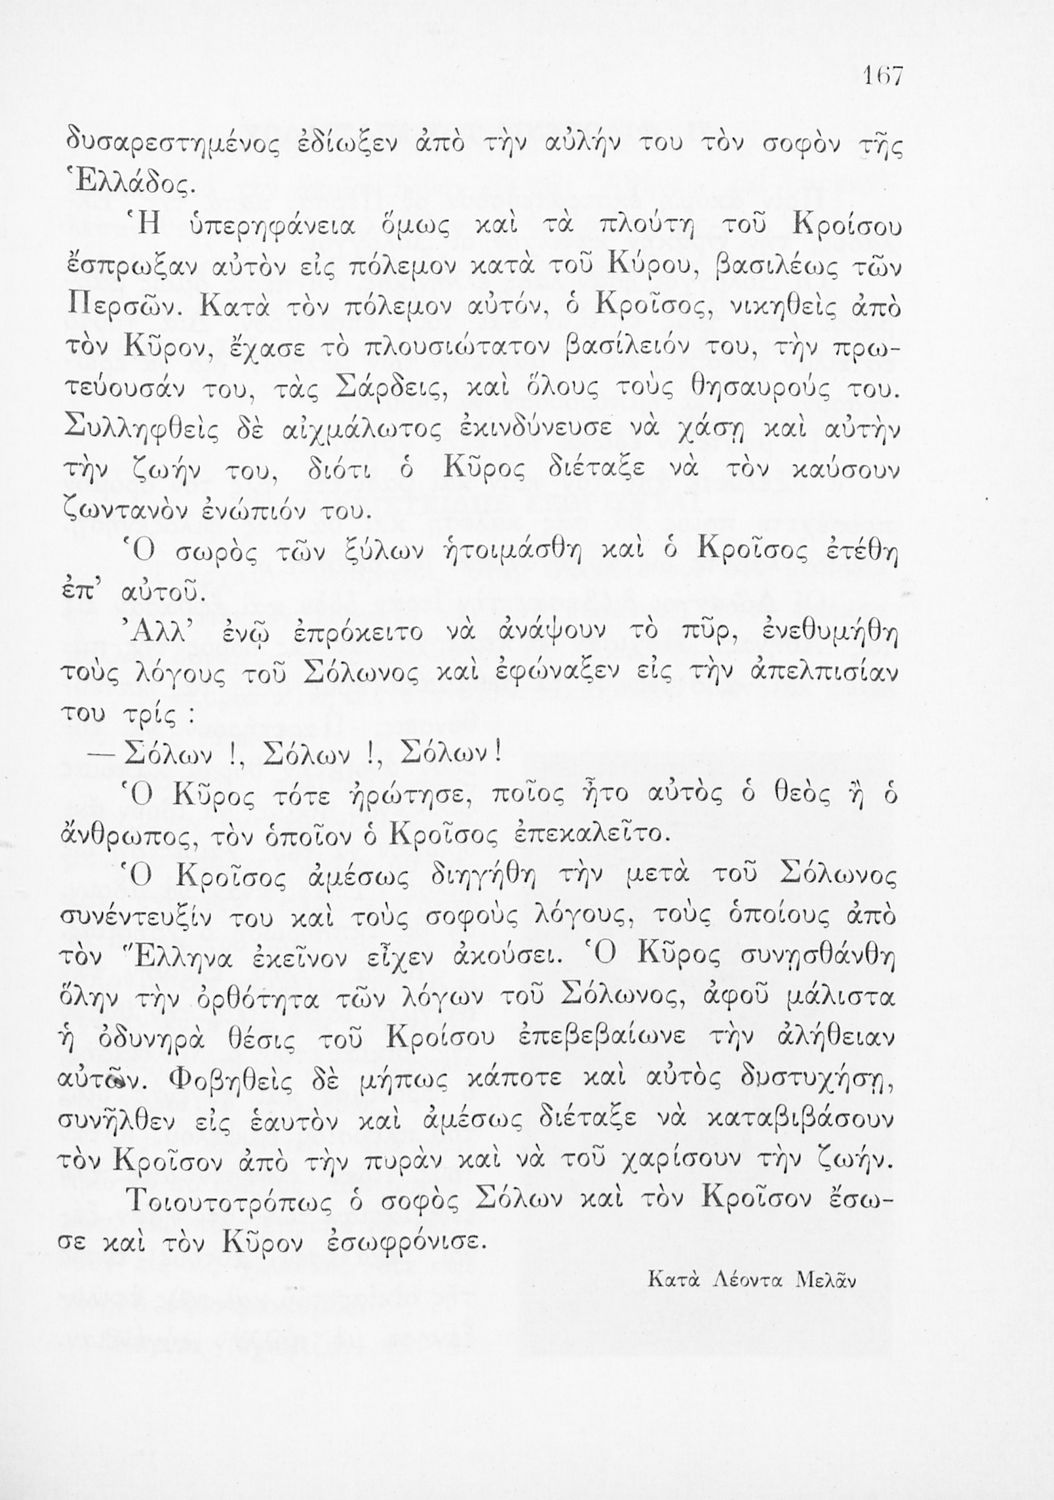 167
δυσαρεστημένος ἐδίωξεν ἀπὸ τὴν αὐλήν του τὸν σοφὸν τῆς
Ἑλλάδος.
Ἡ ὑπερηφάνεια ὅμως καὶ τὰ πλούτη τοῦ Κροίσου
ἔσπρωξαν αὐτὸν εἰς πόλεμον κατὰ τοῦ Κύρου, βασιλέως τῶν
Περσῶν. Κατὰ τὸν πόλεμον αὐτόν, ὁ Κροῖσος, νικηθεὶς ἀπὸ
τὸν Κῦρον, ἔχασε τὸ πλουσιώτατον βασίλειόν του, τὴν πρω-
τεύουσάν του, τὰς Σάρδεις, καὶ ὅλους τοὺς θησαυρούς του.
Συλληφθεὶς δὲ αἰχμάλωτος ἐκινδύνευσε νὰ χάσῃ καὶ αὐτὴν
τὴν ζωήν του, διότι ὁ Κῦρος διέταξε νὰ τὸν καύσουν
ζωντανὸν ἐνώπιόν του.
Ὁ σωρὸς τῶν ξύλων ἡτοιμάσθη καὶ ὁ Κροῖσος ἐτέθη
ἐπ’ αὐτοῦ.
Ἀλλ’ ἐνῷ ἐπρόκειτο νὰ ἀνάψουν τὸ πῦρ, ἐνεθυμήθη
τοὺς λόγους τοῦ Σόλωνος καὶ ἐφώναξεν εἰς τὴν ἀπελπισίαν
του τρίς :
— Σόλων !, Σόλων !, Σόλων!
Ὁ Κῦρος τότε ἠρώτησε, ποῖος ἦτο αὐτὸς ὁ θεὸς ἢ ὁ
ἄνθρωπος, τὸν ὁποῖον ὁ Κροῖσος ἐπεκαλεῖτο.
Ὁ Κροῖσος ἀμέσως διηγήθη τὴν μετὰ τοῦ Σόλωνος
συνέντευξίν του καὶ τοὺς σοφοὺς λόγους, τοὺς ὁποίους ἀπὸ
τὸν Ἕλληνα ἐκεῖνον εἶχεν ἀκούσει. Ὁ Κῦρος συνῃσθάνθη
ὅλην τὴν ὀρθότητα τῶν λόγων τοῦ Σόλωνος, ἀφοῦ μάλιστα
ἡ ὀδυνηρὰ θέσις τοῦ Κροίσου ἐπεβεβαίωνε τὴν ἀλήθειαν
αὐτῶν. Φοβηθεὶς δὲ μήπως κάποτε καὶ αὐτὸς δυστυχήσῃ,
συνῆλθεν εἰς ἑαυτὸν καὶ ἀμέσως διέταξε νὰ καταβιβάσουν
τὸν Κροῖσον ἀπὸ τὴν πυρὰν καὶ νὰ τοῦ χαρίσουν τὴν ζωήν.
Τοιουτοτρόπως ὁ σοφὸς Σόλων καὶ τὸν Κροῖσον ἔσω-
σε καὶ τὸν Κῦρον ἐσωφρόνισε.
Κατὰ Λέοντα Μελᾶν